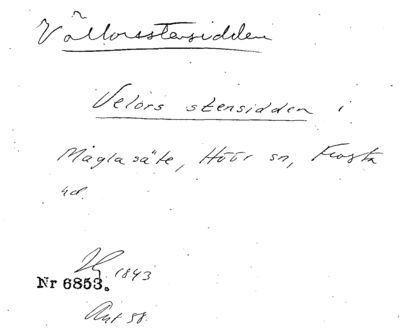 Vällorsstensidden
Velors stensidden i
Maglasäte, Höör sn, Frosta
hd.
1843
Nr 6853.
Ant 58.